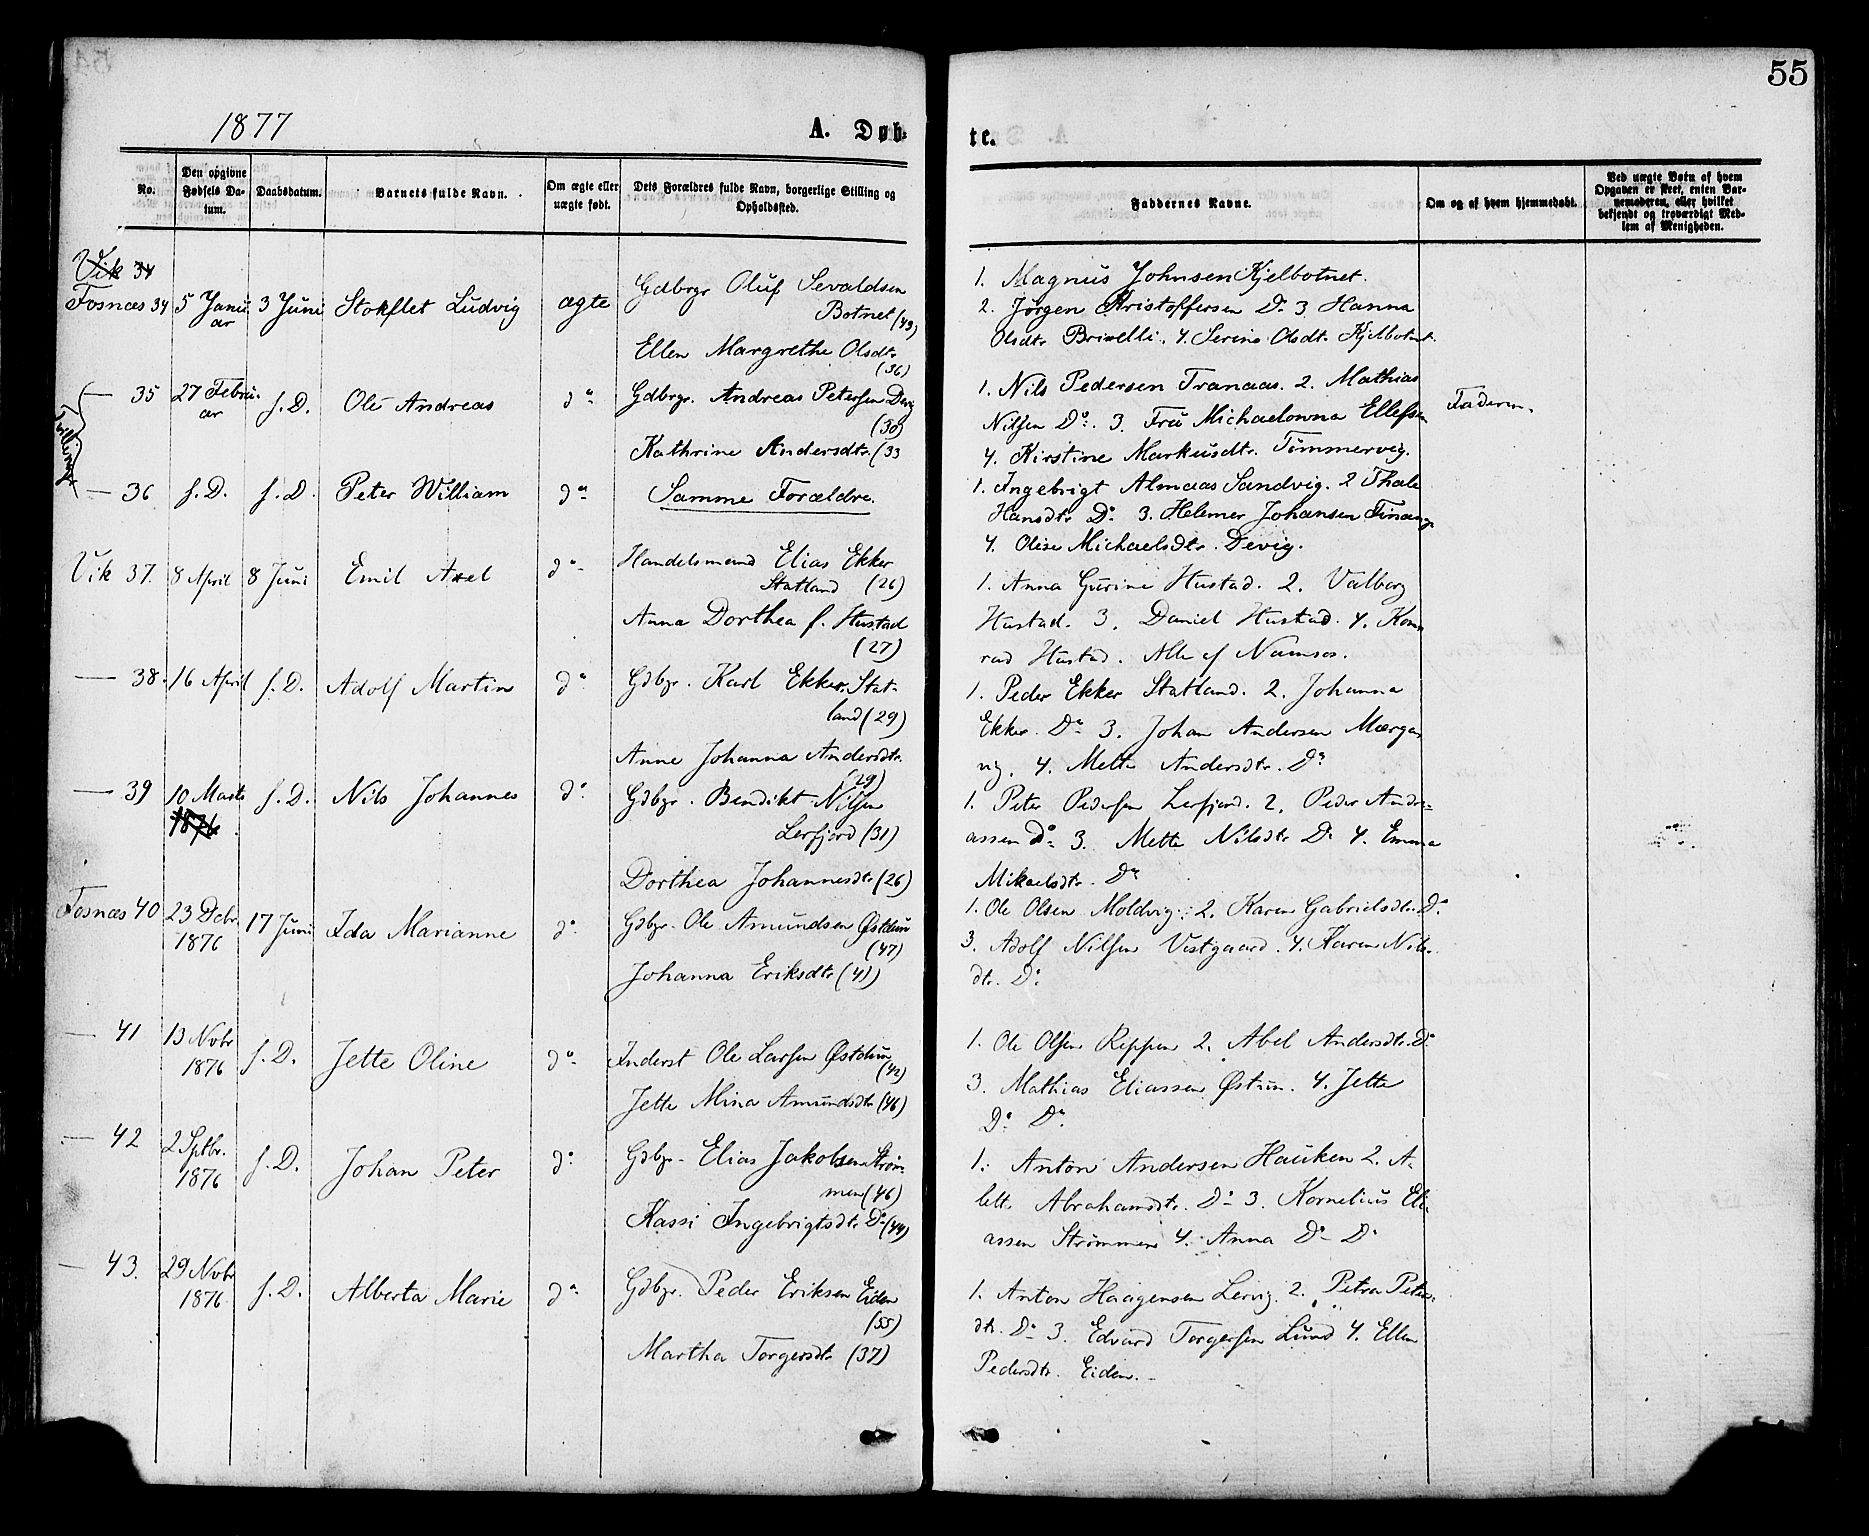 55
1877
A. Døb-
te.
No.
Den opgivne Fødsels Da-tum.
Daabsdatum.
Barnets fulde Navn.
Om ægte eller uægte født.
Dets Forældres fulde Navn, borgerlige Stilling og Opholdssted.
Faddernes Navne.
Om og af hvem hjemmedøbt.
Ved uægte Børn af hvem Opgaven er skeet, enten Bar-nemoderen, eller hvilket bekjendt og troværdigt Med-lem af Menigheden.
Vik 34
Fosnæs 34 5 Janu- 3 Juni Stokflet Ludvig ægte Gdbrgr Oluf Sevaldsen
ar Botnet (43)
Ellen Margrethe Olsdtr.
(36)
1. Magnus Johnsen Kjelbotnet.
2. Jørgen Kristoffersen Do 3 Hanna
Olsdtr. 4. Serine Olsdtr. Kjelbotnet.
Tvillinger
— 35 27 Febru- s. D. Ole Andreas do Gdbrgr. Andreas Petersen Devig
ar (30)
Kathrine Andersdtr. (33
1. Nils Pedersen Tranaas. 2. Mathias
Nilsen Do. 3. Fru Michaelowna Ellefsen
4. Kirstine Markusdtr. Tømmervig.
Faderen.
— 36 s. D. s. D. Peter William do Samme Forældre.
1. Ingebrigt Almaas Sandvig. 2 Thale
Hansdtr Do 3. Helemer Johansen
4. Olise Michaelsdtr. Devig.
Vik 37. 8 April 8 Juni Emil Axel do Handelsmand Elias Ekker
Statland (26)
Anna Dorthea f. Hustad
(27)
1. Anna Gurine Hustad. 2. Valborg
Hustad. 3. Daniel Hustad. 4. Kon-
rad Hustad. Alle af Namsos.
— 38. 16 April s. D. Adolf Martin do Gdbgr. Karl Ekker, Stat-
land (29)
Anne Johanna Andersdtr.
(29)
1. Peder Ekker Statland. 2. Johanna
Ekker. Do 3. Johan Andersen
4. Mette Andersdtr. Do
— 39 10 Marts s. D. Nils Johannes do Gdbgr. Bendikt Nilsen
1876 Lerfjord (31)
Dorthea Johannesdtr (26)
1. Peter Pedersen Lerfjord. 2. Peder Andre-
assen Do 3. Mette Nilsdtr Do 4. Emma
Mikaelsdtr. Do
Fosnæs 40 23 Dcbr 17 Juni Ida Marianne do Gdbgr. Ole Amundsen Østduun
1876 (47)
Johanna Eriksdtr (41)
1. Ole Olsen Moldvig. 2. Karen Gabrielsdtr. Do
3. Adolf Nilsen Vestgaard. 4. Karen Nils-
dtr. Do.
— 41 13 Novbr s. D. Jette Oline do Inderst Ole Larsen Østduun
1876 (42)
Jette Mina Amundsdtr (46)
1. Ole Olsen Reppen 2. Abel Andersdtr. Do
3. Mathias Eliassen 4. Jette
Do Do.
— 42 2 Sptbr. s. D. Johan Peter do Gdbgr. Elias Jakobsen Strøm-
1876 men (46)
Kassi Ingebrigtsdtr Do (44)
1. Anton Andersen Hauken 2. A-
lette Abrahamsdtr. Do 3. Kornelius Eli-
assen Strømmen 4. Anna Do Do
— 43. 29 Novbr s. D. Alberta Marie do Gdbgr. Peder Eriksen Eiden
1876 (55)
Martha Torgersdtr (37)
1. Anton Haagensen Lervig. 2. Petra Peters-
dtr. Do 3. Edvard Torgersen Lund 4. Ellen
Pedersdtr. Eiden.